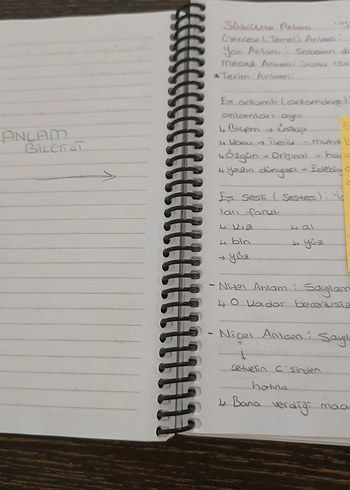 ANLAM
BİLGİSİ
Sözcükte Anlam
Gerçek (Temel) Anlam:
Yan Anlam: Sobanın
Mecaz Anlam: Sana
* Terim Anlam:
Eş anlamlı (anlamdaş):
anlamları aynı
↳ Biçem → Üslup
↳ Konu → İçerik - muht
↳ Özgün → Orijinal -
↳ Yazın dünyası →
Eş sesli (Sesteş): Ya
ları farklı
↳ kız ↳ al
↳ bin ↳ yüz
→ yüz
- Nitel Anlam: Sayılam
↳ O kadar beceriksiz
- Nicel Anlam: Sayıl
cetvelin c'sinden
hatırla
↳ Bana verdiği maa